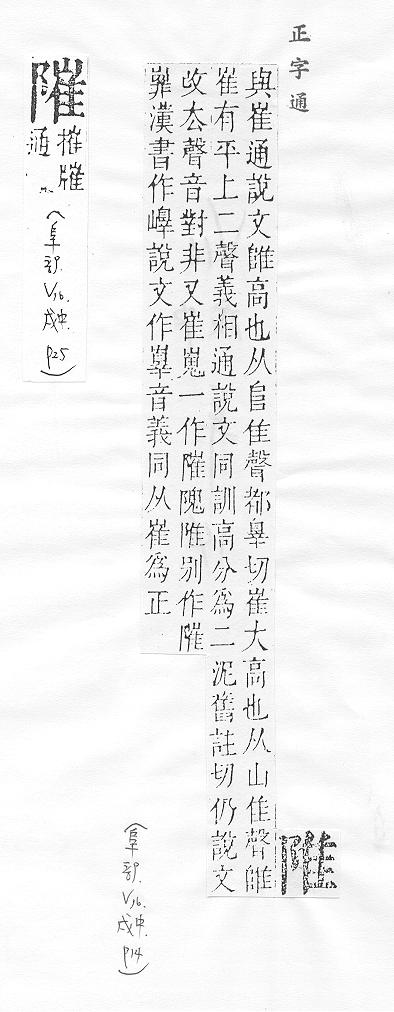 正字通
陮
與崔通說文陮高也从𨸏隹聲都辠切崔大高也从山隹聲陮
崔有平上二聲義相通說文同訓高分為二泥舊註切仍說文
改厺聲音對非又崔嵬一作隓隗陮別作隓
辠漢書作嶵說文作辠音義同从崔為正
(阜部.V16.戌中.P14)
隓
摧㩁
通
(阜部.V16.戌中.P25)